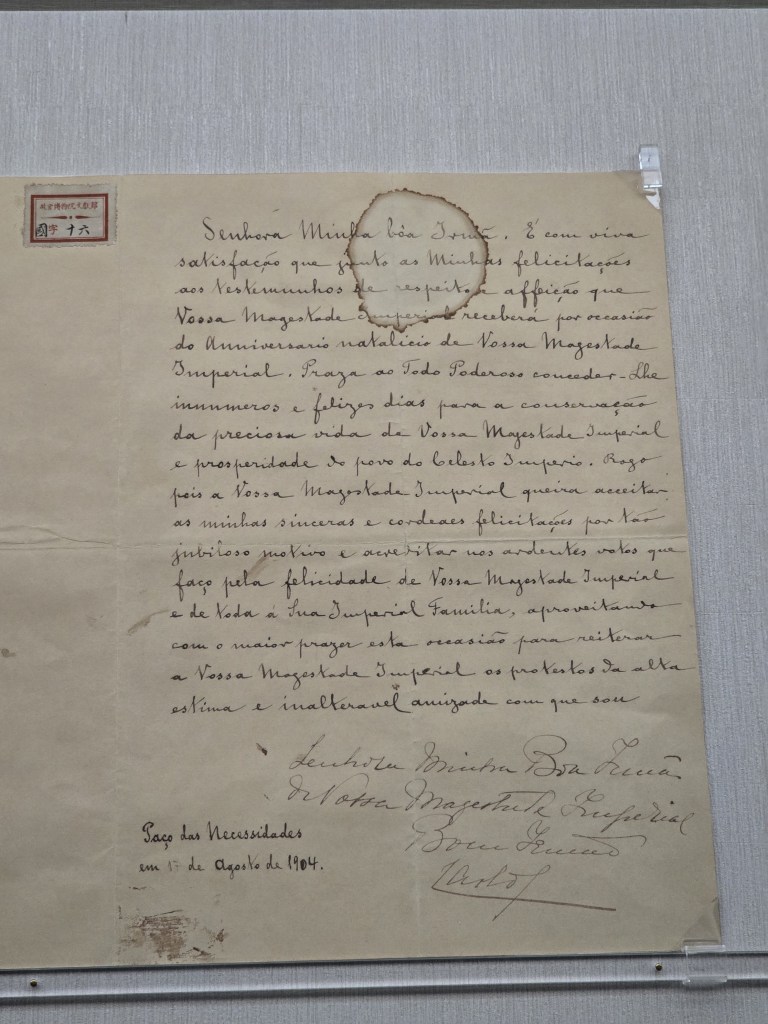 故宮博物院文獻館
國字十六
Senhora Minha bôa Irmã. É com viva
satisfação que junto as Minhas felicitações
aos testemunhos de respeito e affeição que
Vossa Magestade Imperial receberá por occasião
do Anniversario natalicio de Vossa Magestade
Imperial. Praza ao Todo Poderoso conceder-Lhe
inumeros e felizes dias para a conservação
da preciosa vida de Vossa Magestade Imperial
e prosperidade do povo do Celesto Imperio. Rogo
pois a Vossa Magestade Imperial queira acceitar
as minhas sinceras e cordeaes felicitações por tão
jubiloso motivo e acreditar nos ardentes votos que
faço pela felicidade de Vossa Magestade Imperial
e de toda á Sua Imperial Familia, aproveitando
com o maior prazer esta occasião para reiterar
a Vossa Magestade Imperial os protestos da alta
estima e inalteravel amizade com que sou
Senhora Minha Boa Irmã
de Vossa Magestade Imperial
Bom Irmão
Carlos
Paço das Necessidades
em 17 de Agosto de 1904.